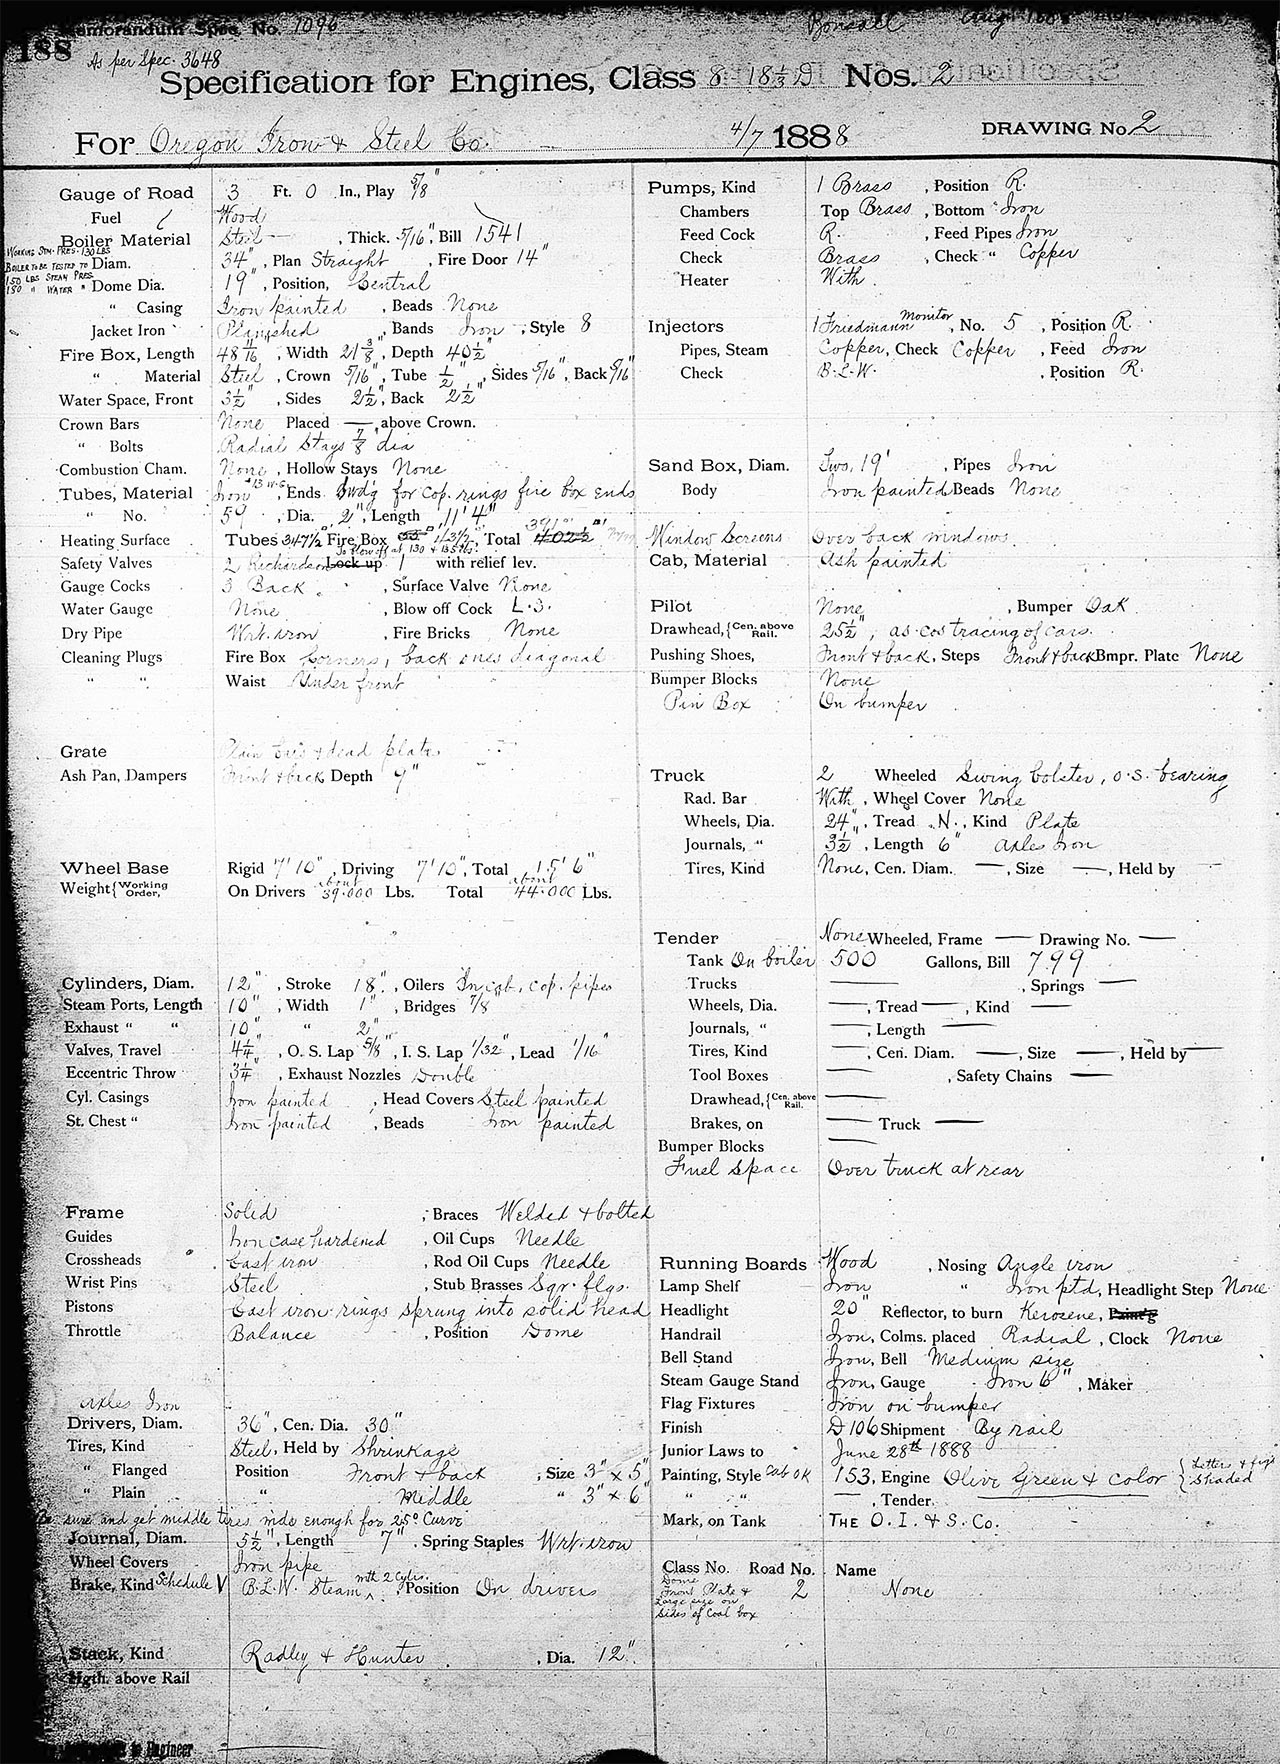 Memorandum Spec. No. 1096
Bonsall
188
As per Spec. 3648
Specification for Engines, Class 8-18 1/3 D Nos. 2
For Oregon Iron & Steel Co. 4/7 1888 DRAWING No 2
Gauge of Road 3 Ft. 0 In., Play 5/8"
Fuel Wood
Boiler Material Steel, Thick. 5/16", Bill 1541
WORKING STM. PRES. 130 LBS
BOILER TO BE TESTED TO
150 LBS STEAM PRES.
180 " WATER "
Diam. 34", Plan Straight, Fire Door 14"
Dome Dia. 19", Position, Central
" Casing Iron painted, Beads None
Jacket Iron Planished, Bands Iron, Style 8
Fire Box, Length 48 11/16", Width 21 3/8", Depth 40 1/2"
" Material Steel, Crown 5/16", Tube 1/2", Sides 5/16", Back 5/16"
Water Space, Front 3 1/2", Sides 2 1/2", Back 2 1/2"
Crown Bars None Placed — above Crown.
" Bolts Radial Stays 7/8" dia
Combustion Cham. None, Hollow Stays None
Tubes, Material Iron #13 W.G., Ends Swd'g for cop. rings fire box ends
" No. 59, Dia. 2", Length 11' 4"
Heating Surface Tubes 347 1/2 Fire Box 43 1/2, Total 391 402 1/2
To blow off at 130 & 135 lbs.
Safety Valves 2 Richardson Lock up 1 with relief lev.
Gauge Cocks 3 Back, Surface Valve None
Water Gauge None, Blow off Cock L.S.
Dry Pipe Wrt. iron, Fire Bricks None
Cleaning Plugs Fire Box Corners, back ones diagonal
" " Waist Under front
Grate Plain bars & dead plate
Ash Pan, Dampers Front & back Depth 9"
Wheel Base Rigid 7' 10", Driving 7' 10", Total 15' 6"
Weight {Working Order, On Drivers about 39.000 Lbs. Total about 44.000 Lbs.
Cylinders, Diam. 12", Stroke 18", Oilers In cab, cop. pipes
Steam Ports, Length 10", Width 1", Bridges 7/8"
Exhaust " " 10" " 2"
Valves, Travel 4 1/4", O. S. Lap 5/8", I. S. Lap 1/32", Lead 1/16"
Eccentric Throw 3 1/4", Exhaust Nozzles Double
Cyl. Casings Iron painted, Head Covers Steel painted
St. Chest " Iron painted, Beads Iron painted
Frame Solid, Braces Welded & bolted
Guides Iron case hardened, Oil Cups Needle
Crossheads Cast iron, Rod Oil Cups Needle
Wrist Pins Steel, Stub Brasses Sqr. flgs.
Pistons Cast iron rings sprung into solid head
Throttle Balance, Position Dome
Axles Iron
Drivers, Diam. 36", Cen. Dia. 30"
Tires, Kind Steel, Held by Shrinkage
" Flanged Position Front & back, Size 3" x 5"
" Plain " Middle " 3" x 6"
Be sure and get middle tires wide enough for 25° Curve
Journal, Diam. 5 1/2", Length 7", Spring Staples Wrt. iron
Wheel Covers Iron pipe
Brake, Kind Schedule V B.L.W. Steam with 2 Cyls. Position On drivers
Stack, Kind Radley & Hunter, Dia. 12"
Hgth. above Rail
to Engineer
Pumps, Kind 1 Brass, Position R.
Chambers Top Brass, Bottom Iron
Feed Cock R., Feed Pipes Iron
Check Brass, Check " Copper
Heater With
Injectors 1 Friedmann Monitor, No. 5, Position R.
Pipes, Steam Copper, Check Copper, Feed Iron
Check B.L.W., Position R.
Sand Box, Diam. Two, 19", Pipes Iron
Body Iron painted Beads None
Window Screens Over back windows
Cab, Material Ash painted
Pilot None, Bumper Oak
Drawhead, {Cen. above Rail. 25 1/2", as cos tracing of cars.
Pushing Shoes, Front & back, Steps Front & back Bmpr. Plate None
Bumper Blocks None
Pin Box On bumper
Truck 2 Wheeled Swing bolster, O.S. bearing
Rad. Bar With, Wheel Cover None
Wheels, Dia. 24", Tread N., Kind Plate
Journals, " 3 1/2", Length 6" Axles Iron
Tires, Kind None, Cen. Diam. —, Size —, Held by —
Tender None Wheeled, Frame — Drawing No. —
Tank On boiler 500 Gallons, Bill 799
Trucks —, Springs —
Wheels, Dia. —, Tread —, Kind —
Journals, " —, Length —
Tires, Kind —, Cen. Diam. —, Size —, Held by —
Tool Boxes —, Safety Chains —
Drawhead, {Cen. above Rail. —
Brakes, on — Truck —
Bumper Blocks —
Fuel space Over truck at rear
Running Boards Wood, Nosing Angle iron
Lamp Shelf Iron " Iron ptd, Headlight Step None
Headlight 20" Reflector, to burn Kerosene, Paint'g
Handrail Iron, Colms. placed Radial, Clock None
Bell Stand Iron, Bell Medium size
Steam Gauge Stand Iron, Gauge Iron 6", Maker
Flag Fixtures Iron on bumper
Finish D 106 Shipment By rail
Junior Laws to June 28th 1888
Painting, Style Cab OK 153, Engine Olive Green & color {Letters & figs Shaded
" " —, Tender
Mark, on Tank THE O. I. & S. Co.
Class No. Road No. Name
Dome
Front Plate &
Large size on
Sides of Coal box
2 None